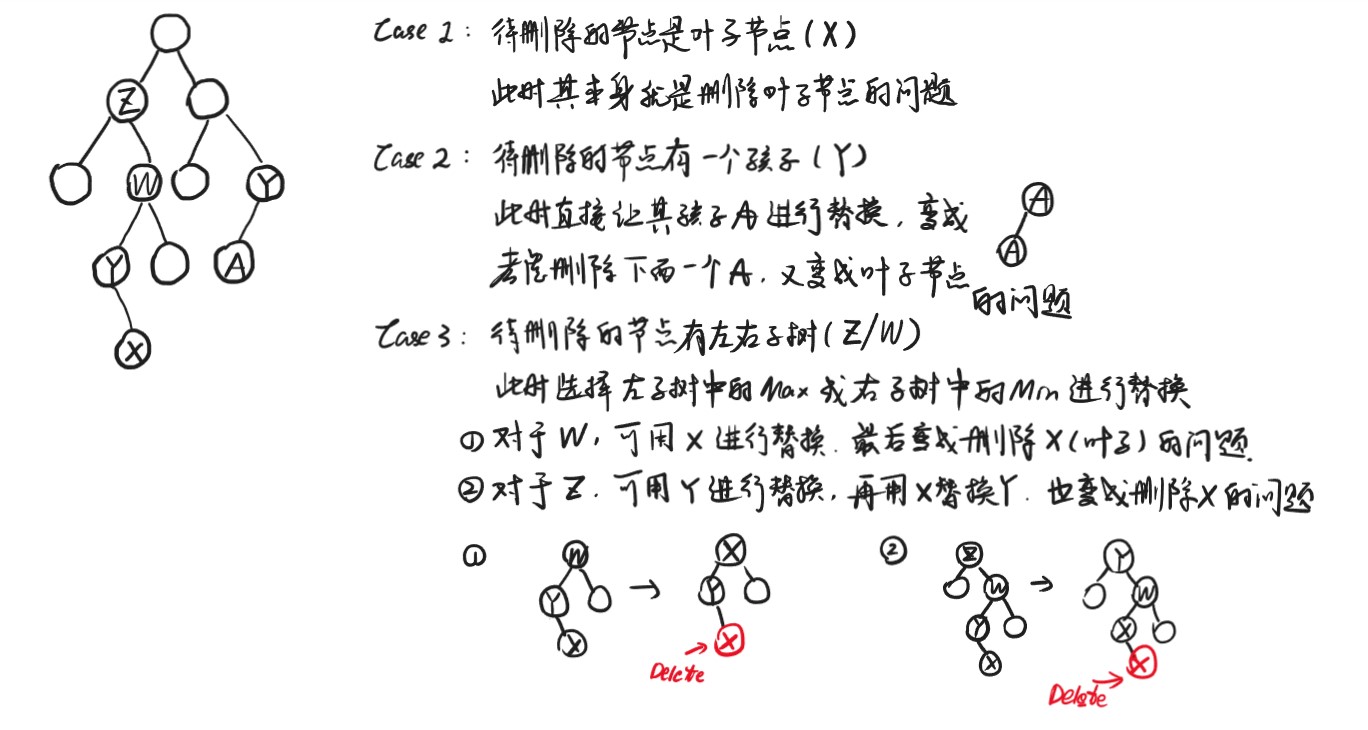 Z
W
Y
Y
A
X
Case 1: 待删除的节点是叶子节点(X)
此时其本身就是删除叶子节点的问题
Case 2: 待删除的节点有一个孩子(Y)
此时直接让其孩子A进行替换,变成
考虑删除下面一个A,又变成叶子节点
的问题
A
A
Case 3: 待删除的节点有左右子树(Z/W)
此时选择左子树中的Max或右子树中的Min进行替换
① 对于W,可用X进行替换.最后变成删除X(叶子)的问题.
② 对于Z.可用Y进行替换,再用X替换Y.也变成删除X的问题
①
W
Y
X
→
X
Y
X
Delete
②
Z
W
Y
X
→
Y
W
X
X
Delete